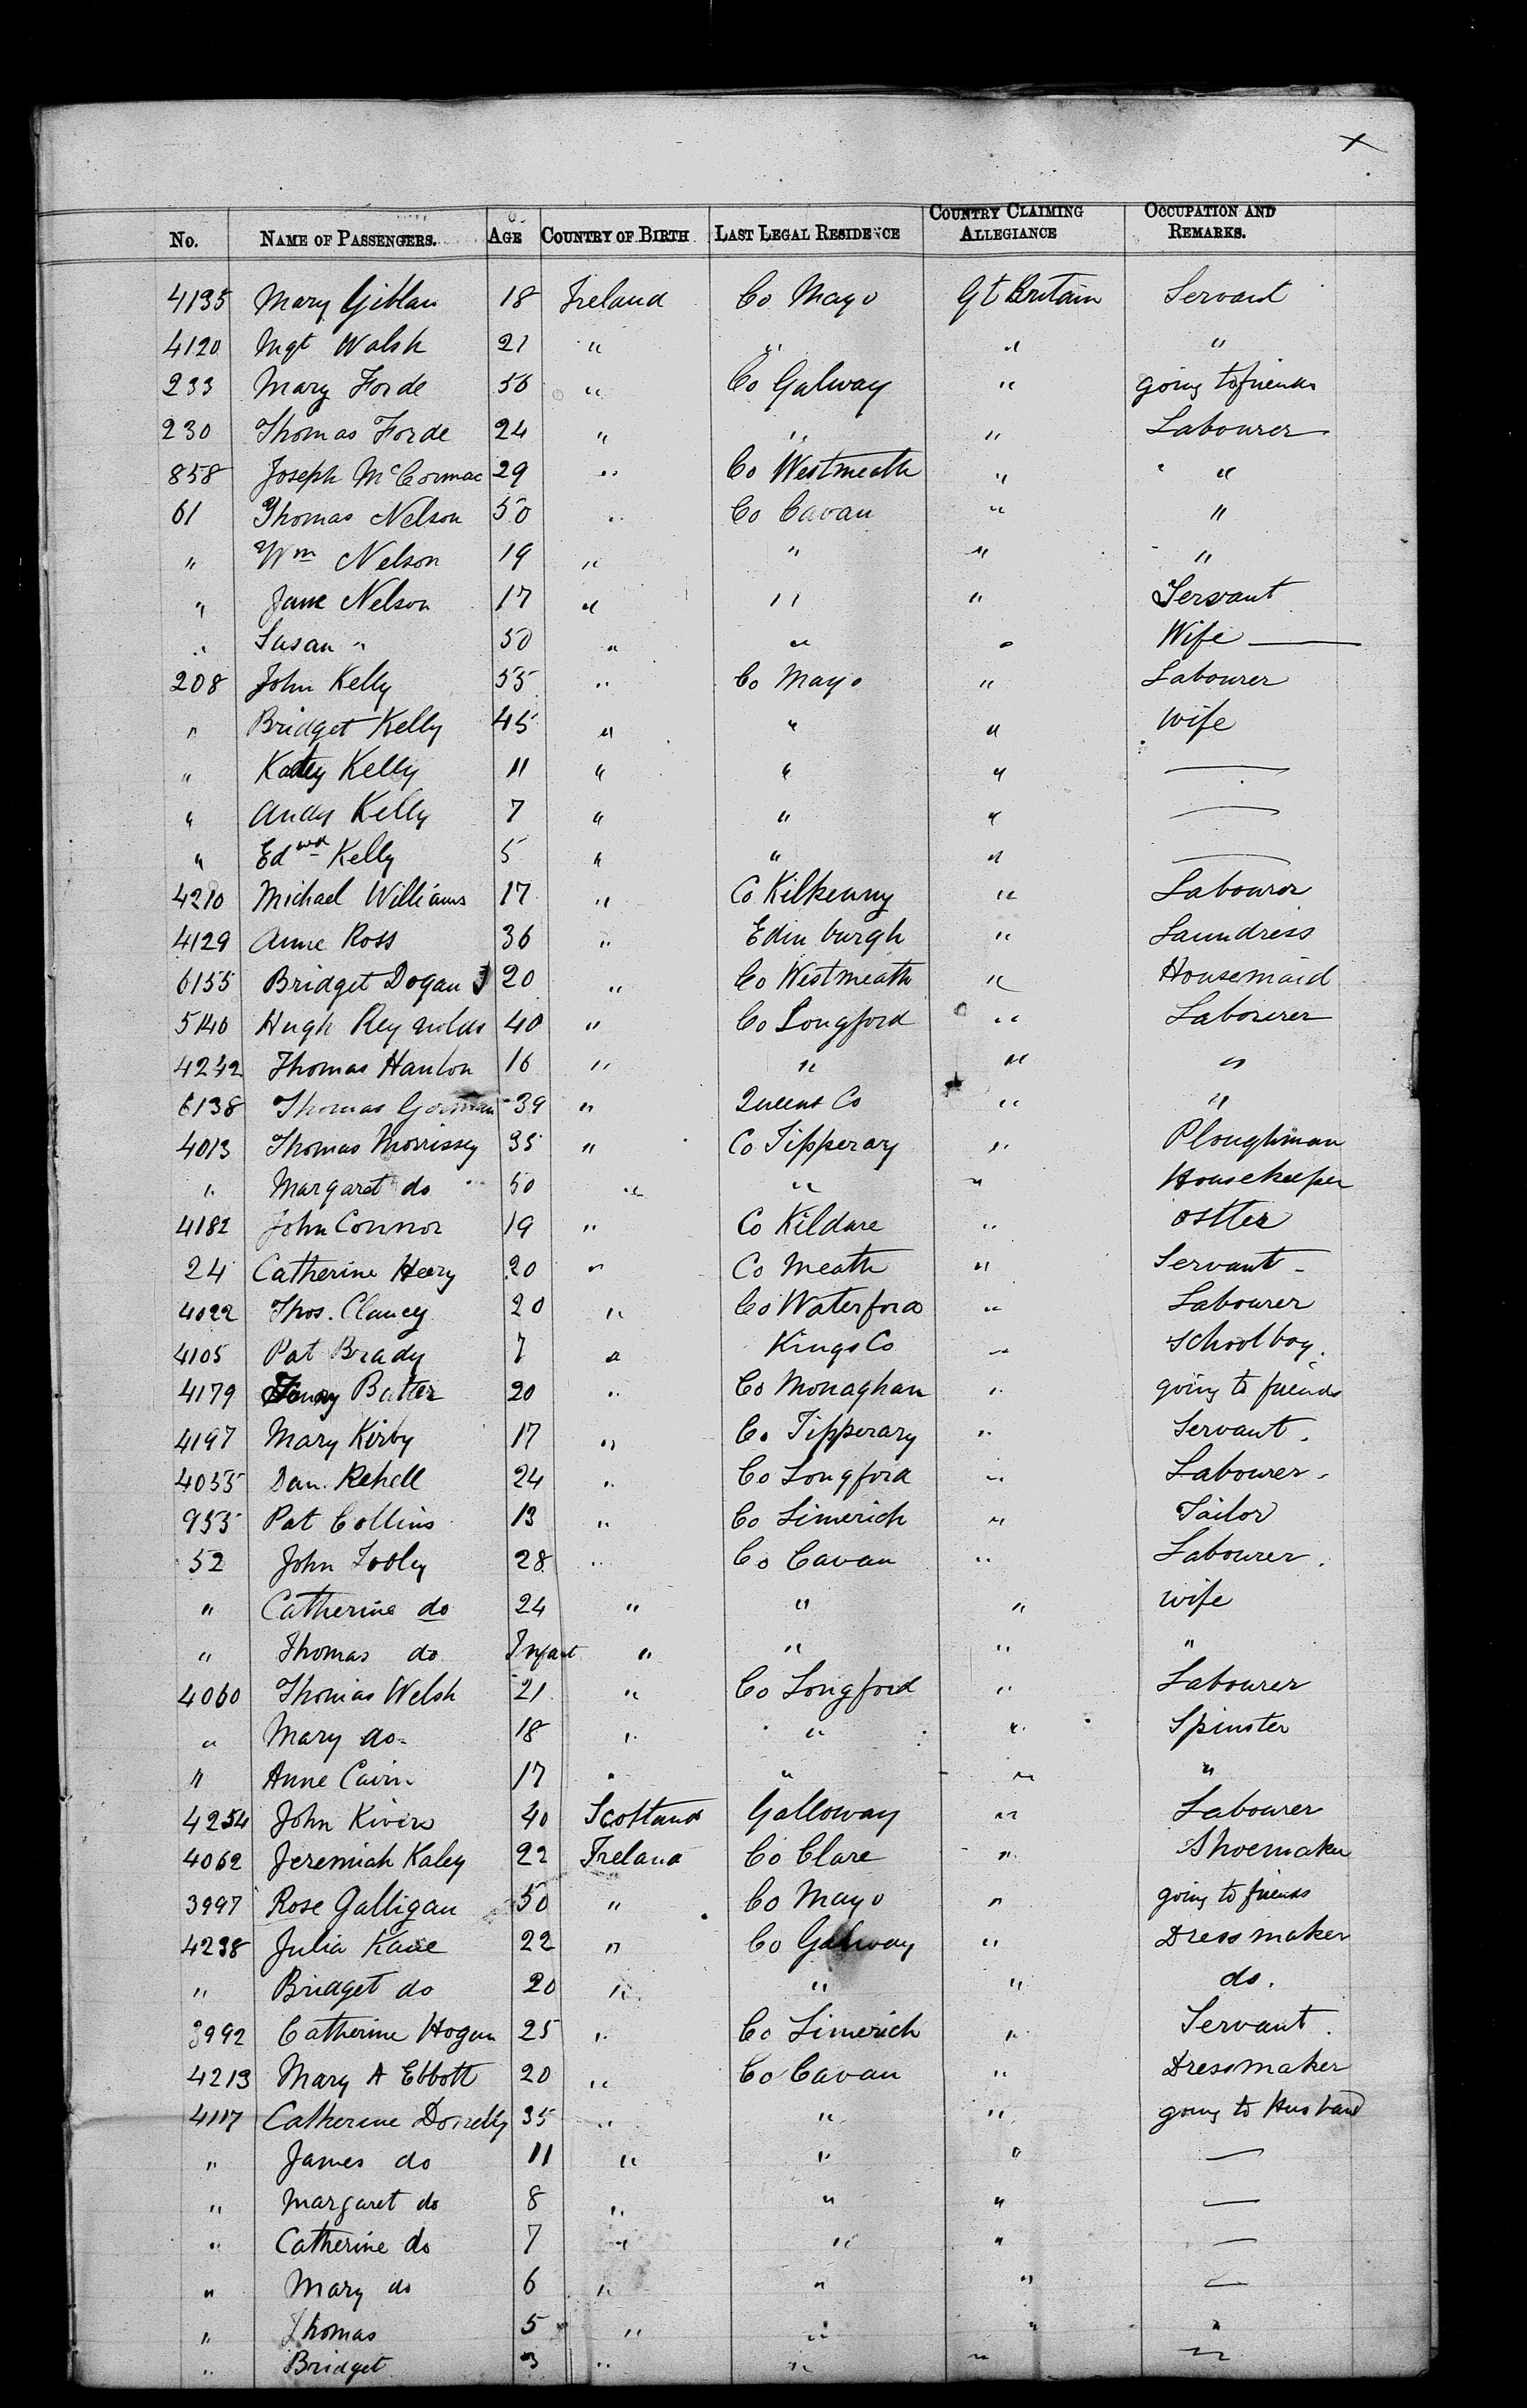 x
No. NAME OF PASSENGERS. AGE COUNTRY OF BIRTH LAST LEGAL RESIDENCE COUNTRY CLAIMING ALLEGIANCE OCCUPATION AND REMARKS.
4135 Mary Giblan 18 Ireland Co Mayo Gt Britain Servant
4120 Mgt Walsh 21 " " " "
233 Mary Forde 56 " Co Galway " going to friends
230 Thomas Forde 24 " " " Labourer
858 Joseph McCormac 29 " Co Westmeath " "
61 Thomas Nelson 50 " Co Cavan " "
" Wm Nelson 19 " " " "
" Jane Nelson 17 " " " Servant
" Susan " 50 " " " Wife —
208 John Kelly 55 " Co Mayo " Labourer
" Bridget Kelly 45 " " " wife
" Katey Kelly 11 " " " —
" Andy Kelly 7 " " " —
" Edwd Kelly 5 " " " —
4210 Michael Williams 17 " Co Kilkenny " Labourer
4129 Anne Ross 36 " Edinburgh " Laundress
6155 Bridget Dogan 20 " Co Westmeath " Housemaid
5140 Hugh Reynolds 40 " Co Longford " Labourer
4242 Thomas Hanlon 16 " " " "
6138 Thomas Gorman 39 " Queens Co " "
4013 Thomas Morrissey 35 " Co Tipperary " Ploughman
" Margaret do 50 " " " Housekeeper
4182 John Connor 19 " Co Kildare " ostler
24 Catherine Heery 20 " Co Meath " Servant
4022 Thos. Clancy 20 " Co Waterford " Labourer
4105 Pat Brady 7 " Kings Co " Schoolboy.
4179 Batter 20 " Co Monaghan " going to friends
4197 Mary Kirby 17 " Co Tipperary " Servant.
4035 Dan. Kehell 24 " Co Longford " Labourer
955 Pat Collins 13 " Co Limerick " Tailor
52 John Tooley 28 " Co Cavan " Labourer.
" Catherine do 24 " " " wife
" Thomas do Infant " " " "
4060 Thomas Welsh 21 " Co Longford " Labourer
" Mary do 18 " " " Spinster
" Anne Cairn 17 " " " "
4254 John Kivers 40 Scotland Galloway " Labourer
4062 Jeremiah Kaley 22 Ireland Co Clare " Shoemaker
3997 Rose Galligan 50 " Co Mayo " going to friends
4238 Julia Kane 22 " Co Galway " Dressmaker
" Bridget do 20 " " " do.
3992 Catherine Hogan 25 " Co Limerick " Servant.
4213 Mary A Ebbott 20 " Co Cavan " Dressmaker
4117 Catherine Donelly 35 " " " going to Husband
" James do 11 " " " —
" Margaret do 8 " " " —
" Catherine do 7 " " " —
" Mary do 6 " " " —
" Thomas 5 " " " "
" Bridget 3 " " " "